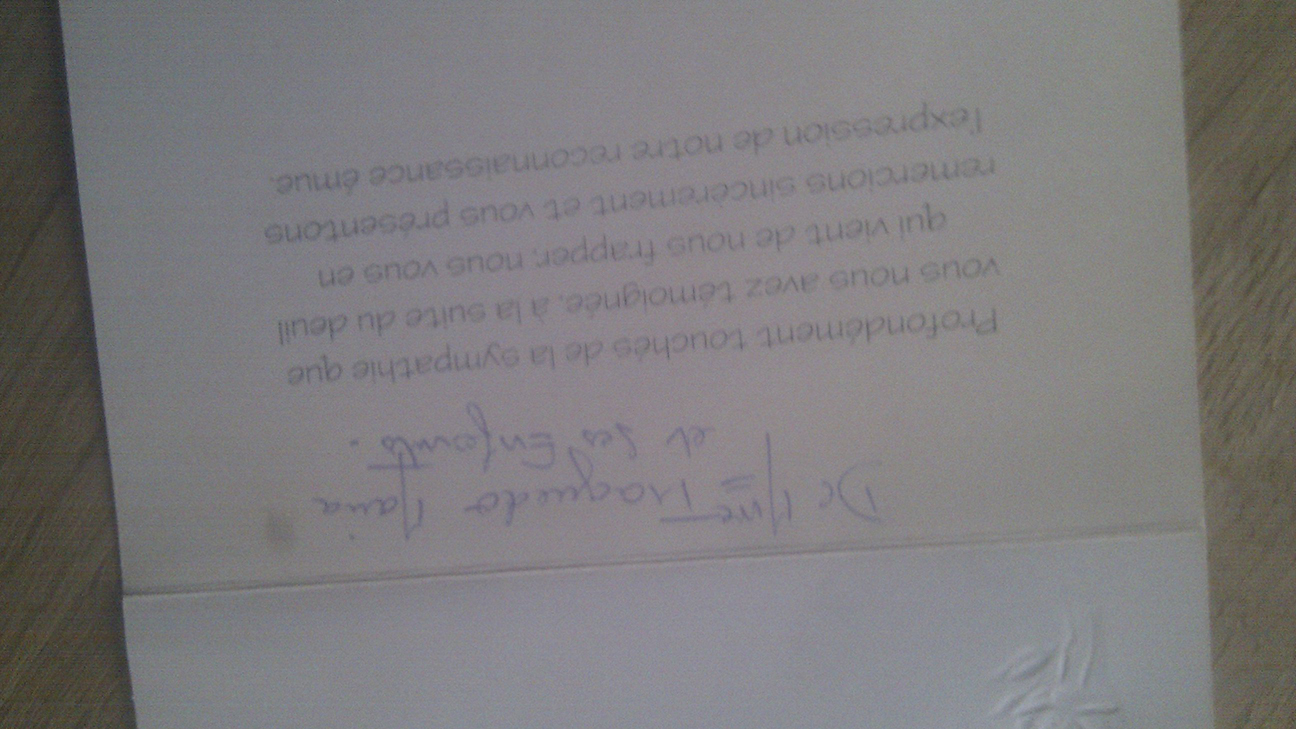 De Mme Maquedo Maria
et ses Enfants.
Profondément touchés de la sympathie que
vous nous avez témoignée, à la suite du deuil
qui vient de nous frapper, nous vous en
remercions sincèrement et vous présentons
l'expression de notre reconnaissance émue.